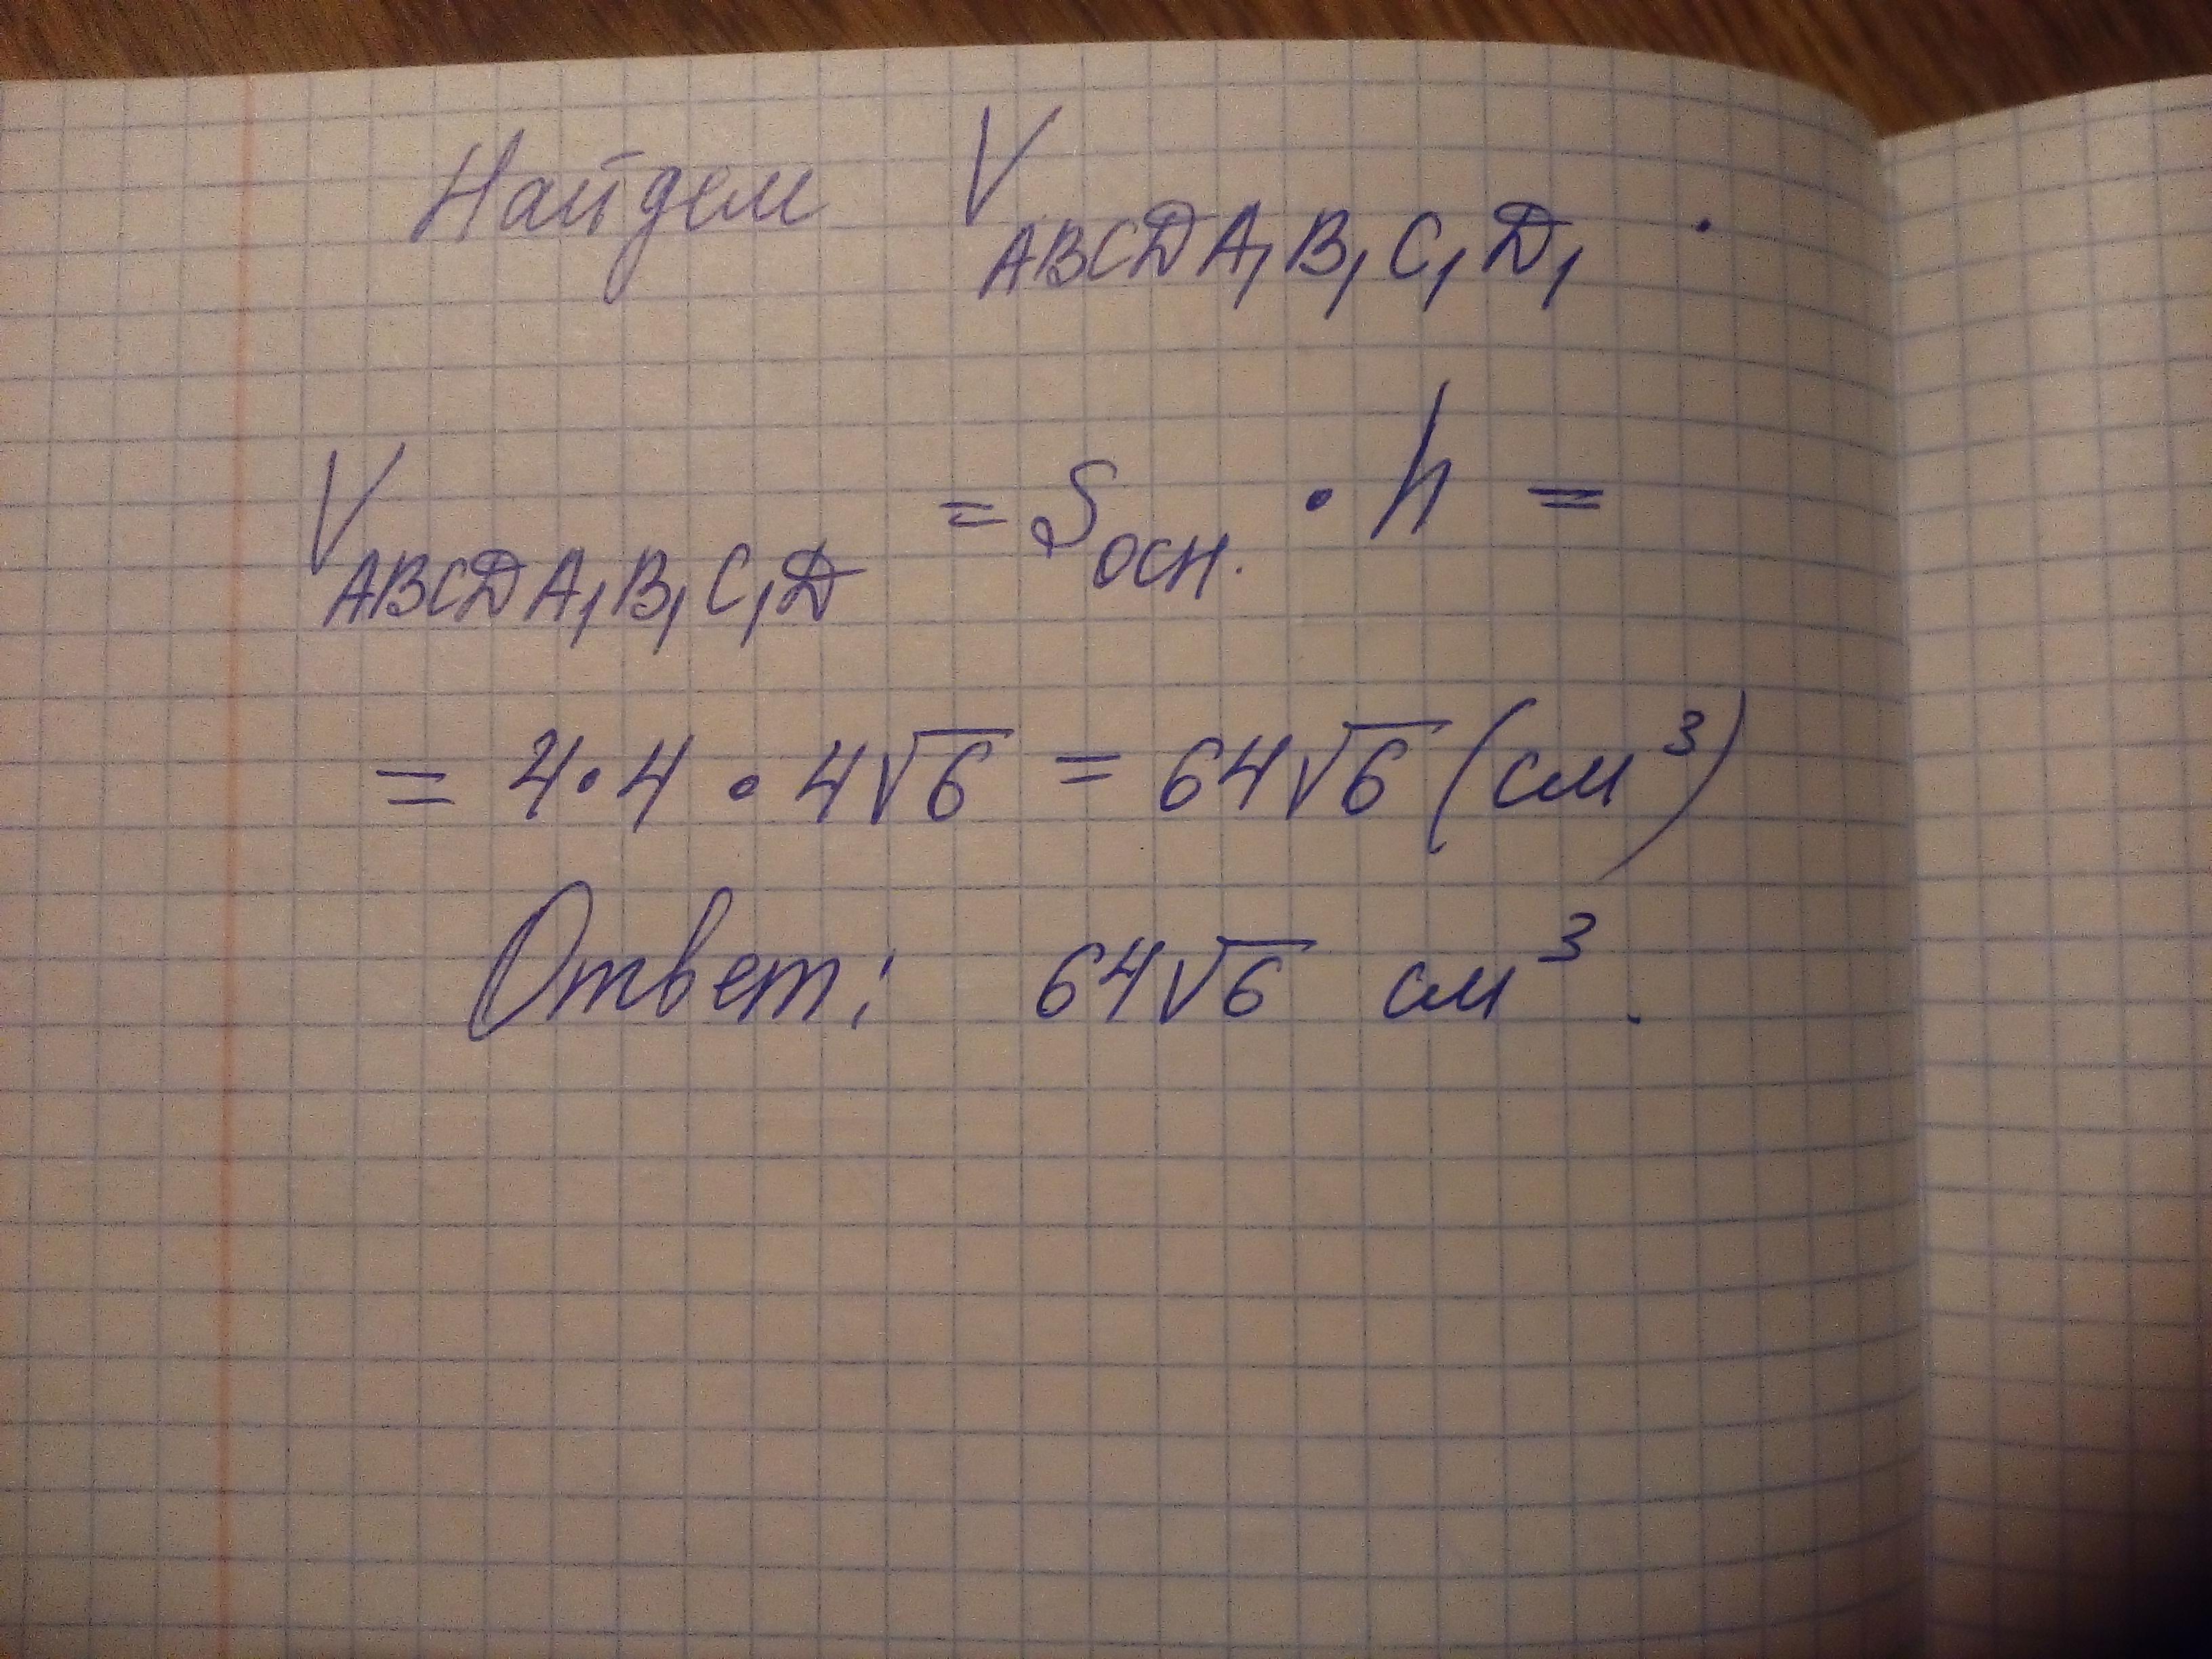 Найдем V ABCDA₁B₁C₁D₁.
V ABCDA₁B₁C₁D = Sосн. · h =
= 4·4 · 4√6 = 64√6 (см³)
Ответ: 64√6 см³.